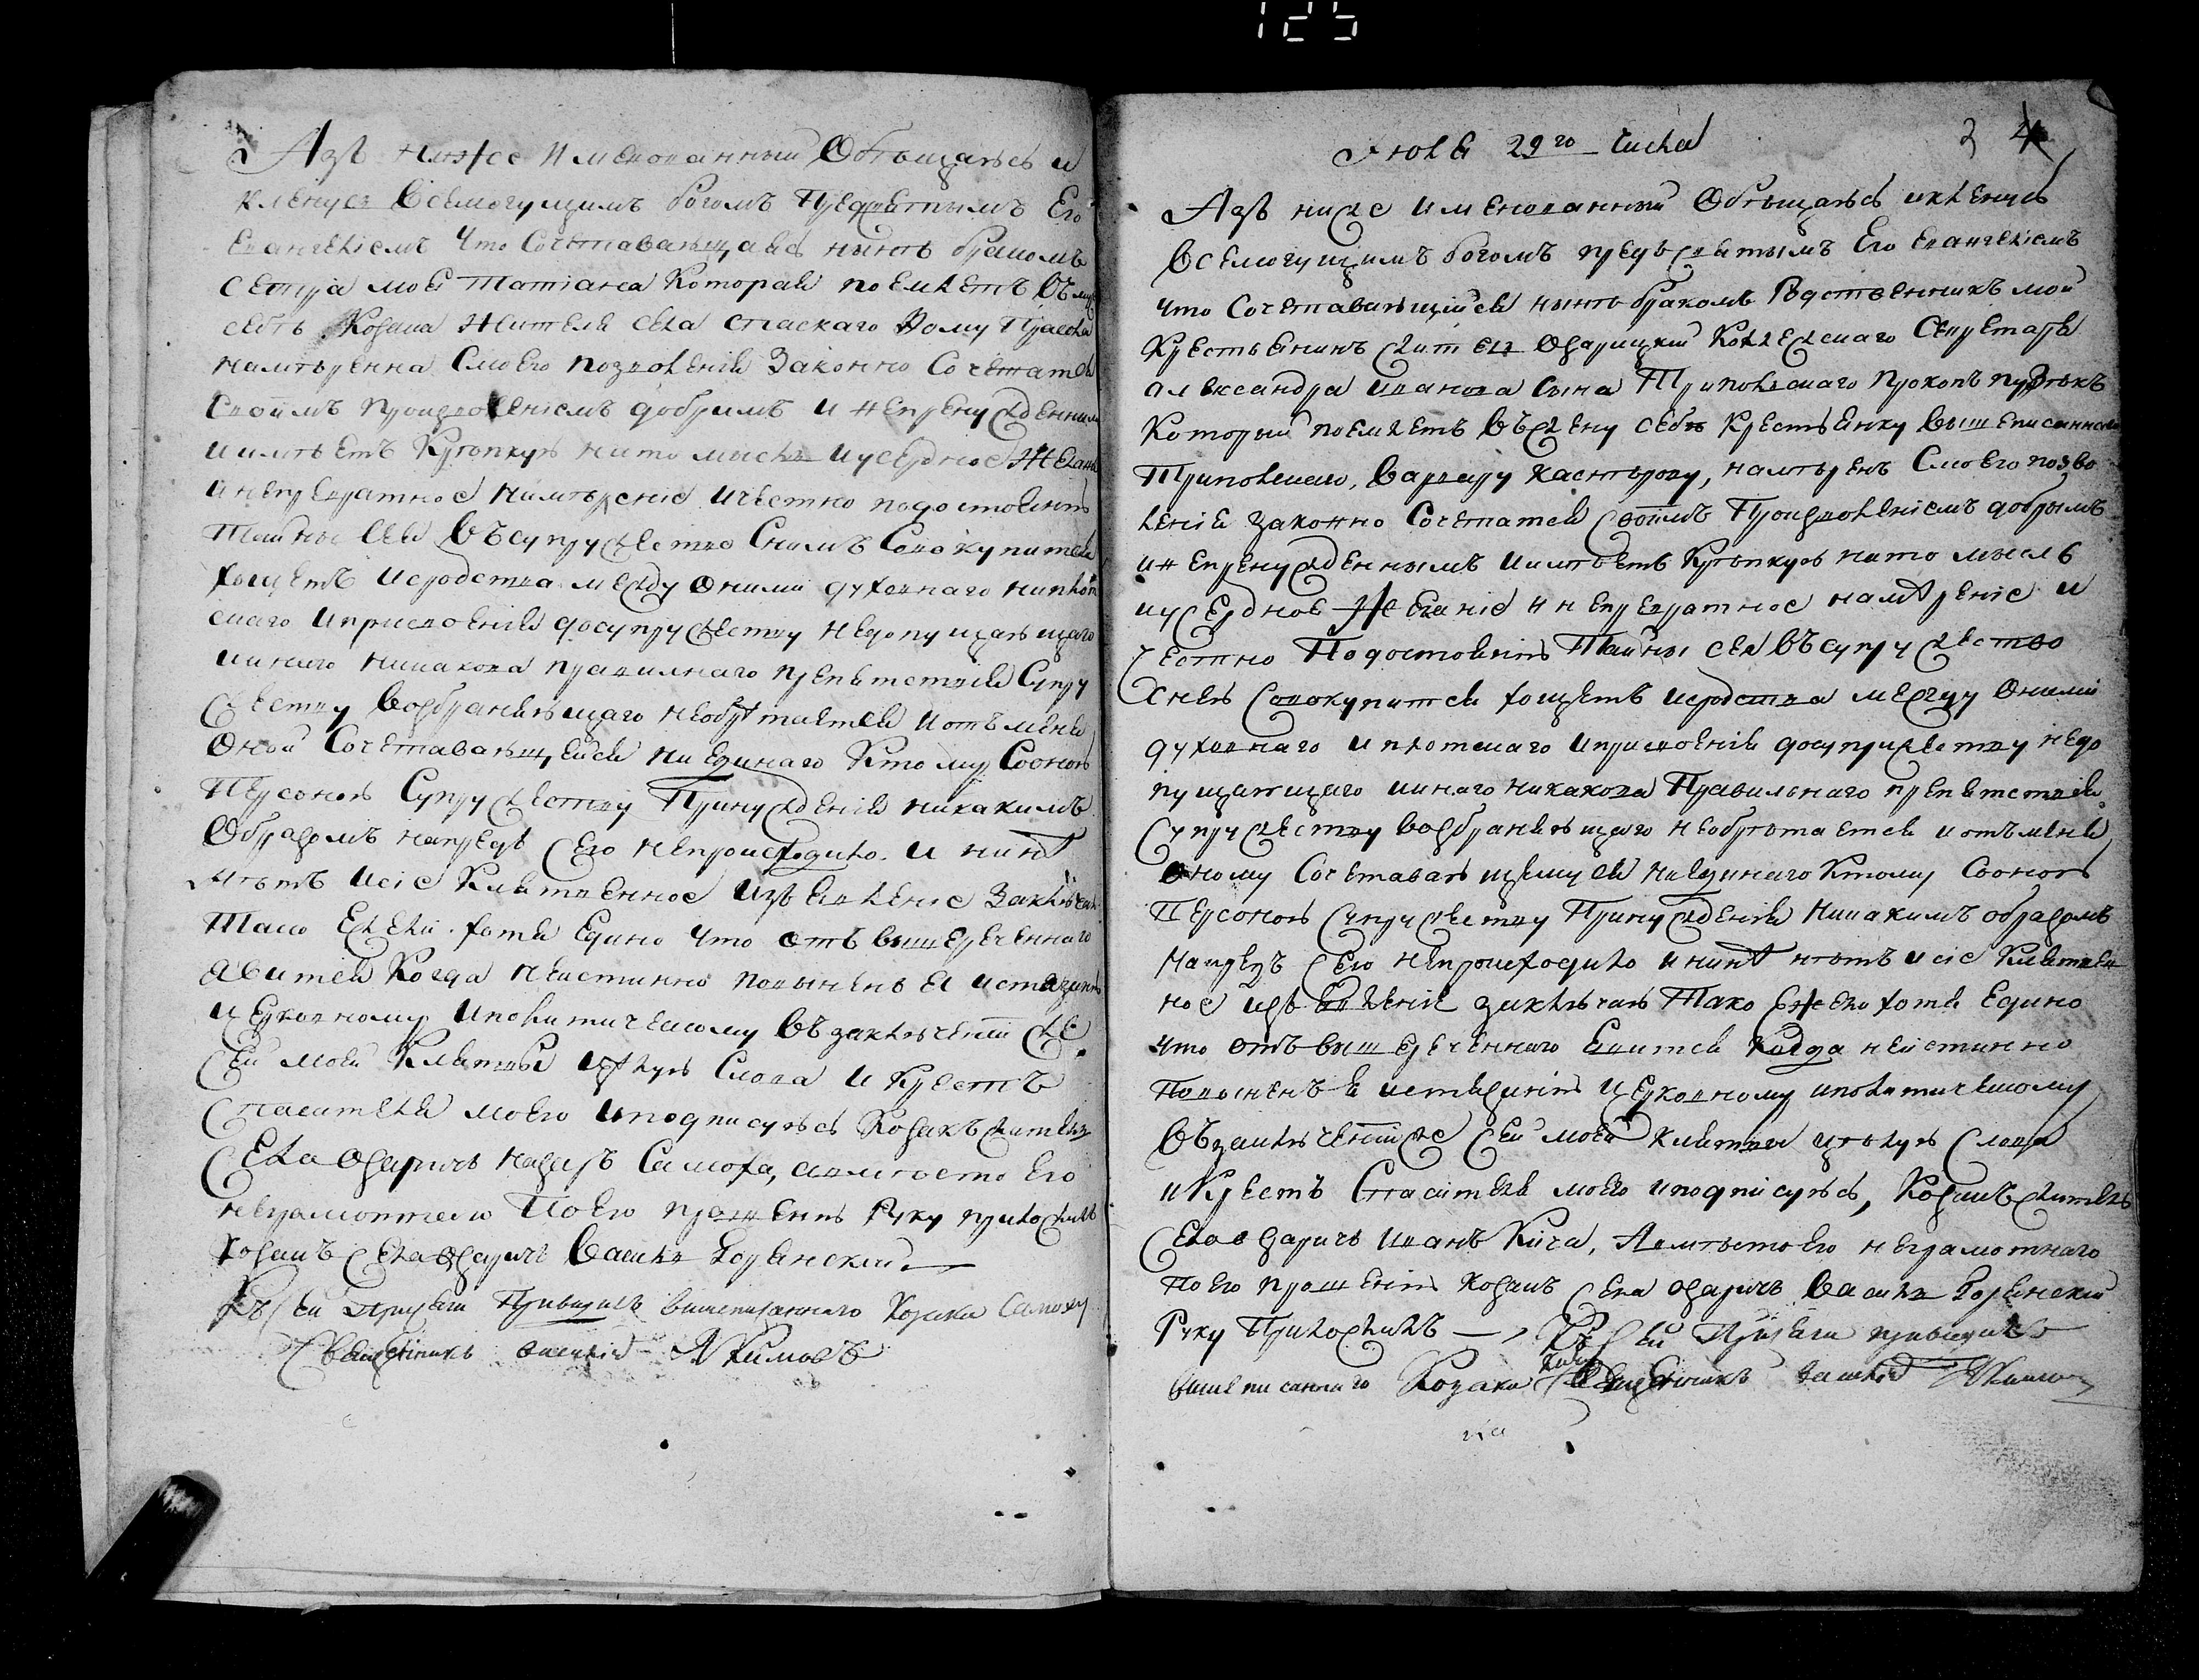 125
Азъ ниже имянованный Обѣщаюсь и
кленусь Всемогущимъ богомъ Предсвятымъ Его
Евангелiемъ Что Сочетавающаяся нынѣ бракомъ
сестра моя Татiана Которая поемлетъ Въ мужа
себѣ Козака Жителя села спаскаго
намѣренна Смоего позволенiя Законно Сочетатся
Своимъ произволенiемъ добримъ и непренужденнимъ
и имѣетъ Крѣпкую на то мысль и усердное Желанiе
и непревратное намѣренiе и честно по достоянiю
Тайны Сея Въ супружество Снимъ Совокупится
хощетъ и сродства между оними духовнаго и плот
скаго и присвоенiя до супружеству недопущающаго
и инаго никакова правилнаго препятствiя Супру
жеству возбраняющаго необрѣтается и отъ меня
Оной Сочетавающейся ни единаго Ктому Сооною
Персоною Супружеству Принужденiя никакимъ
Образомъ напредъ Сего непроисходило и нинѣ
нѣтъ и сiе Клятвенное Изъявленiе Заключаю
Тако Ежели хотя Едино Что отъ вышереченного
явится Когда неистинно повыненъ я истязанiю
Церковному и политическому Въ заключенiи же
Сей моей Клятвы цѣлую Слова и Крестъ
Спасителя моего и подписуюсь Козакъ житель
Села Озаричъ Назаръ Самоха, а вмѣсто его
неграмотнего По его прошенiю Руку приложилъ
Козакъ Села Озаричъ Василь
Къ сей присяги Приводилъ вишеписанного Козака Самоху
Священникъ Василiй Якимовъ
Iюля 29го числа
Азъ ниже имянованный Обѣщаюсь и кленусь
Всемогущимъ богомъ предъ святымъ Его Евангелiемъ
что Сочетавающiйся нынѣ бракомъ Родственникъ мой
Крестьянинъ житель Озарицкий Коллежскаго Секретаря
александра иванова сына Триполскаго Прокопъ
Который поемлетъ Въ жену себѣ Крестьянку вышеписанного
Триполскаго, Варвару, намѣренъ Смоего позво
ленiя законно Сочетатся Своимъ Произволенiемъ добрымъ
и непренужденнымъ и имѣетъ Крѣпкую на то мысль
и усердное Желанiе и непревратное намѣренiе и
честно По достоянiю Тайны сея Въ супружество
снею Совокупится хощетъ и сродства между оними
духовнаго и плотскаго и присвоенiя до супружеству недо
пущающаго и инаго никакова Правильнаго препятствiя
Супружеству возбраняющаго необрѣтается и отъ меня
оному Сочетавающемуся ни единаго Ктому Сооною
Персоною Супружеству Принужденiя Никакимъ образомъ
Напредъ Сего непроисходило и нинѣ нѣтъ и сiе Клятвен
ное изъявленiе заключаю Тако Ежели хотя Едино
что отъ вышереченного явится Когда неистинно
Повыненъ я истязанiю Церковному и политическому
Въ заключенiи же Сей моей клятвы цѣлую Слова
и Крестъ Спасителя моего и подписуюсь, Козакъ житель
Села озаричъ Иванъ Кича, А вмѣсто его неграмотнаго
По его прошенiю козакъ Села озаричъ Василь
Руку Приложилъ — Къ Сей Присяги приводилъ
вишеписанного Козака Кичу Священникъ Василiй Якимовъ